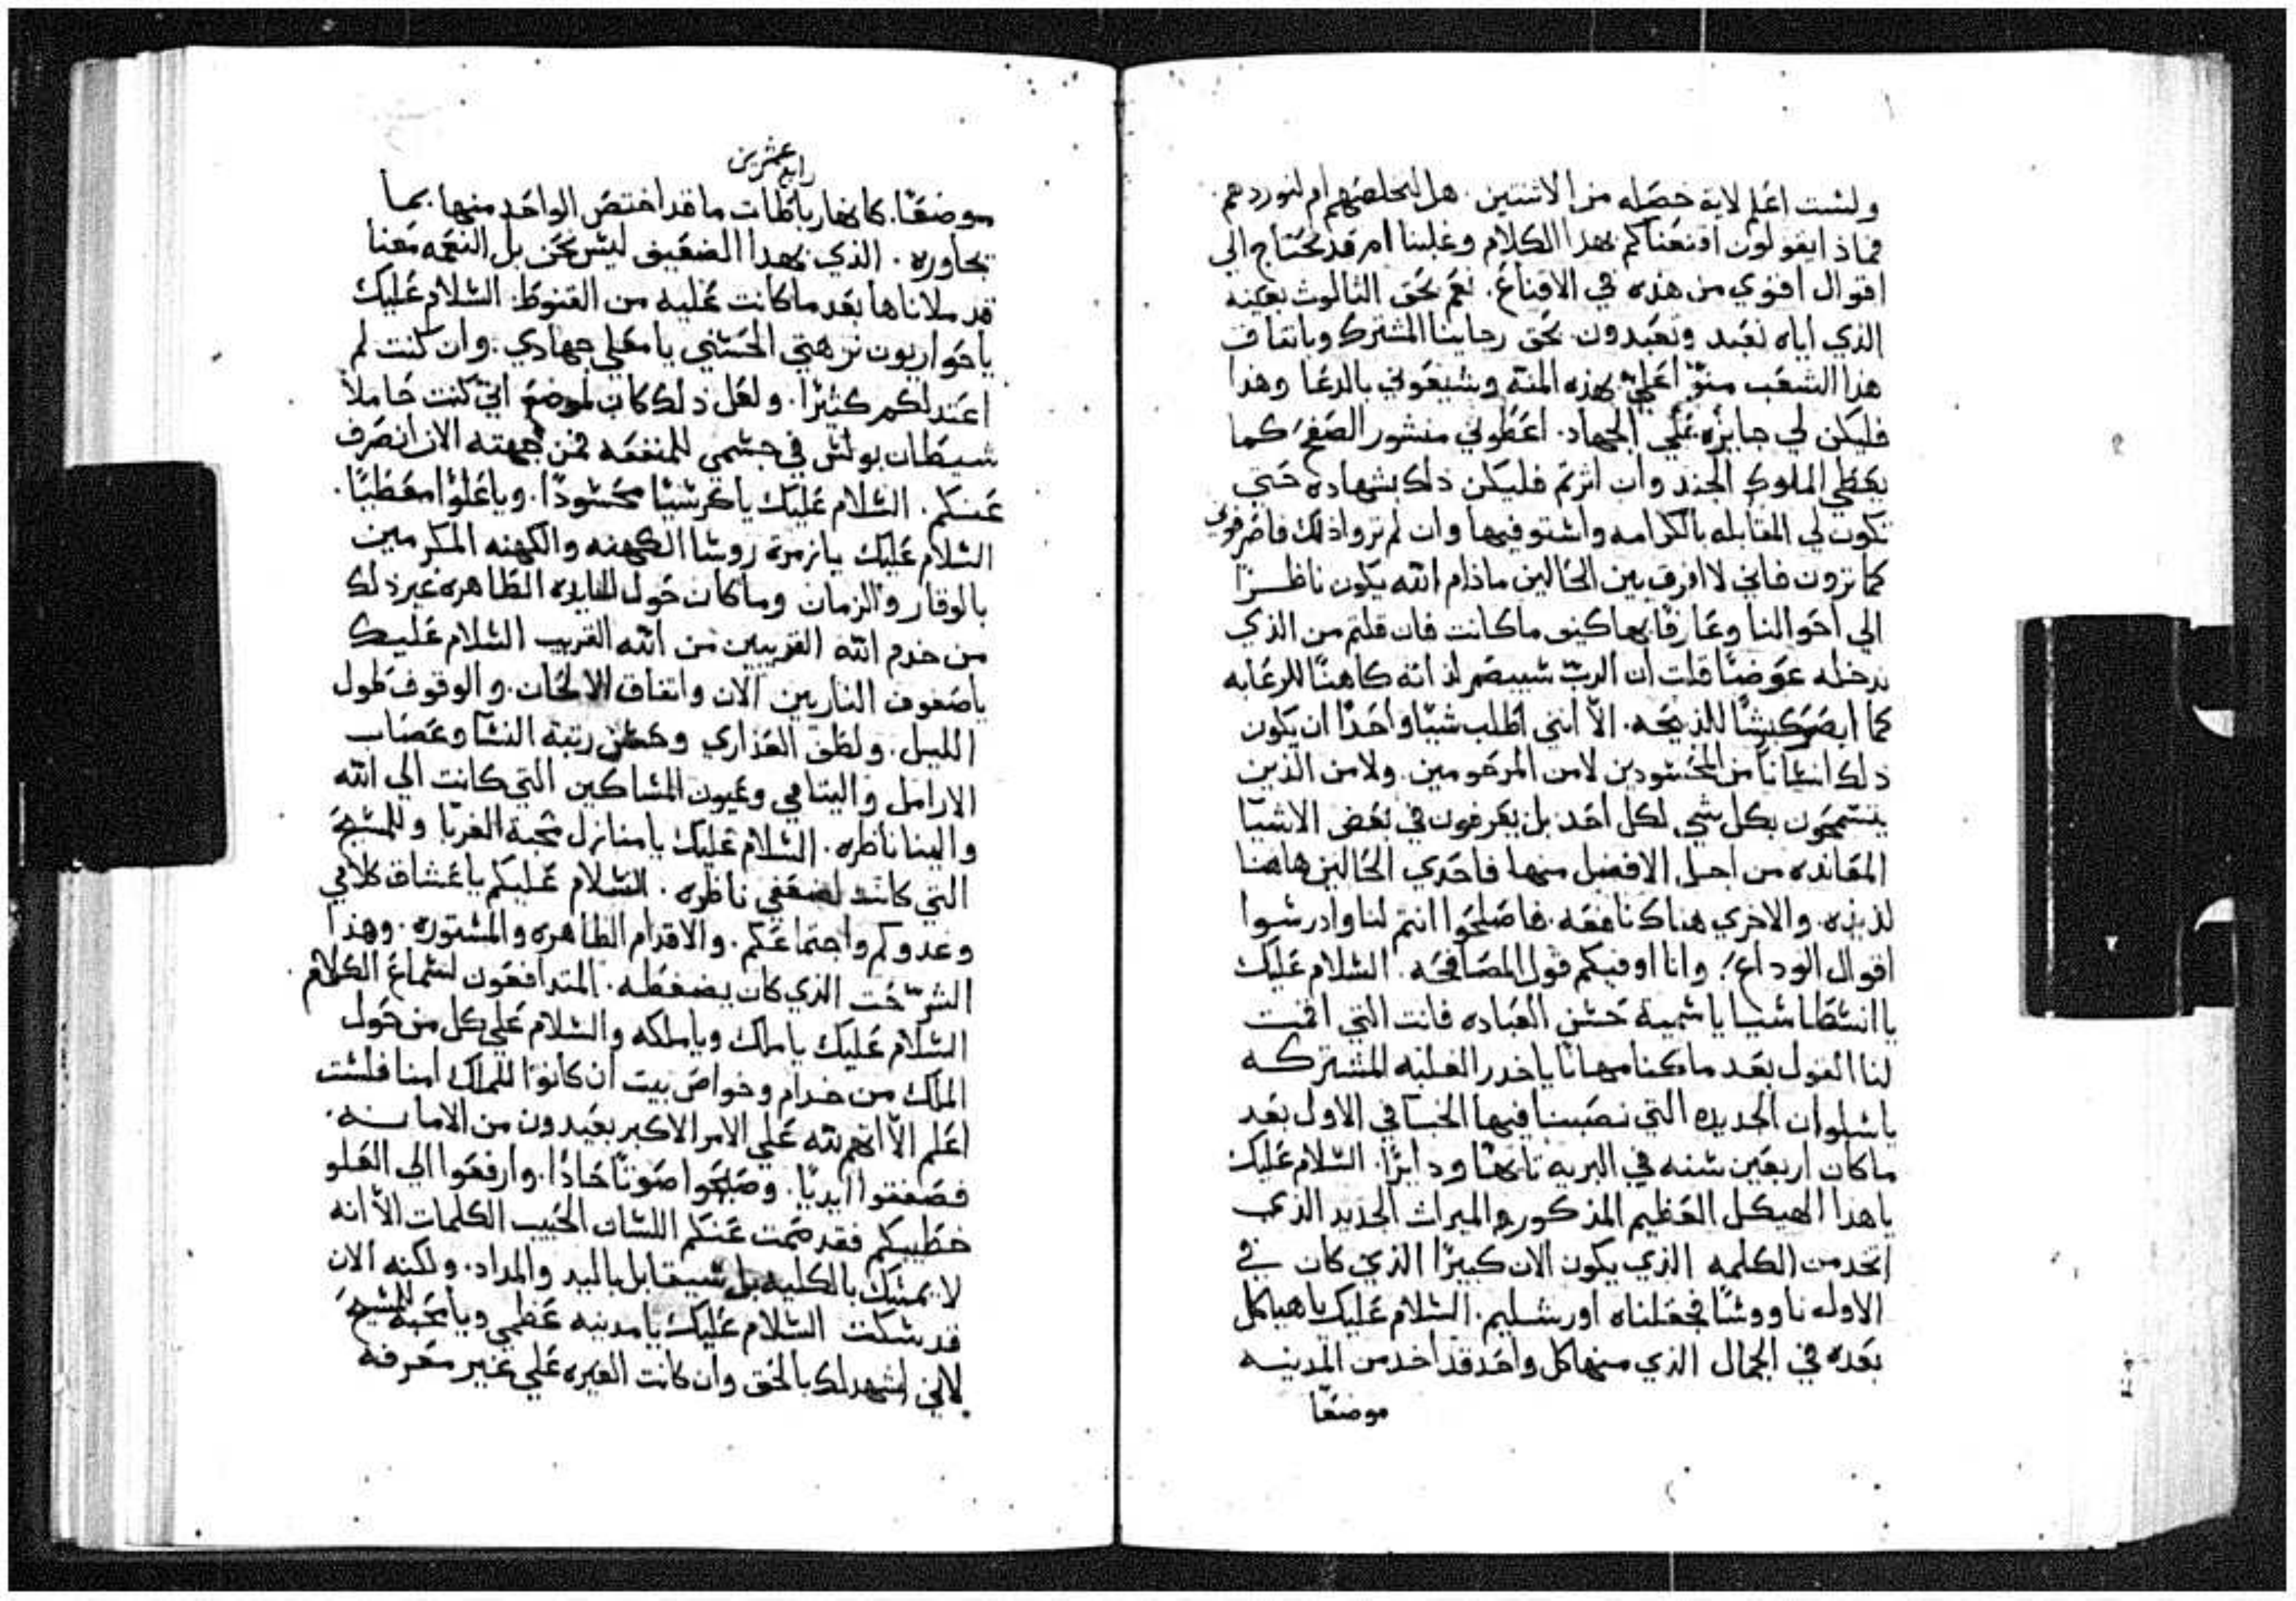 ولست اعلم لاية خصله من الاثنتين. هل لنخلصهم ام لنوردهم
فماذا يقولون اقنعناكم بهذا الكلام وغلبنا ام قد نحتاج الي
اقوال اقوي من هذه في الاقناع. نعم بحق الثالوث بعينه
الذي اياه نعبد وتعبدون بحق رجاينا المشترك وباتفاق
هذا الشعب منوّا عليّ بهذه المنة وشيعوني بالدعا وهذا
فليكن لي جايزه علي الجهاد. اعطوني منشور الصفح كما
يعطي الملوك الجند وان اثرتم فليكن ذلك بشهاده حتي
تكون لي المقابله بالكرامه واستوفيها وان لم تروا ذلك فاصرفوني
كما ترون فاني لا افرق بين الحالين ماذام الله يكون ناظرًا
الي احوالنا وعارفًا بها كيف ما كانت فان قلتم من الذي
ندخله عوضًا قلت ان الربّ سيبصر لذاته كاهنًا للرعايه
كما ابصر كبشًا للذبيحه. الاّ انني اطلب شيًا واحدًا ان يكون
ذلك انسانًا من المحسودين لا من المرحومين. ولا من الذين
يتسمحون بكل شي لكل احد بل يعرفون في بعض الاشيا
المعانده من اجل الافضل منها فاحدي الحالين هاهنا
لذيذه. والاخري هناك نافعه. فاصلحوا انتم لنا وادرسوا
اقوال الوداع. وانا اوفيكم قول المصافحه. السلام عليك
يا انسطاسيا يا سمية حسن العباده فانت التي اقمت
لنا القول بعد ما كنا مهانًا يا خدر الغلبه المشتركه
يا سلوان الجديده التي نصبنا فيها الخبا في الاول بعد
ما كان اربعين سنه في البريه تايهًا ودايرًا. السلام عليك
يا هذا الهيكل العظيم المذكور والميراث الجديد الذي
اتخد من الكلمه الذي يكون الان كبيرًا الذي كان في
الاوله ناووسًا فجعلناه اورشليم. السلام عليك يا هياكل
بعده في الجمال الذي منها كل واحد قد اخد من المدينه
موضعًا
رابع عشرين
موضعًا. كانها رباطات ما قد اختص الواحد منها بما
يجاوره. الذي بهدا الضعيف ليس نحن بل النعمه معنا
قد ملاناها بعد ما كانت عليه من القنوط. السلام عليك
يا حواريون نزهتي الحسني يا معلي جهادي. وان كنت لم
اعتد لكم كثيرًا. ولعل ذلك كان لموضع اني كنت حاملاً
شيطان بولس في جسمي للمنفعه فمن جهته الان انصرف
عنكم. السلام عليك يا كرسيًا محسودًا. ويا علوًا معطبًا.
السلام عليك يا زمرة روسا الكهنه والكهنه المكرمين
بالوقار والزمان وما كان حول المايده الطاهره غير ذلك
من خدم الله القريبين من الله القريب السلام عليك
يا صفوف الناريين الان واتفاق الالحان. والوقوف طول
الليل. ولطف العذاري وحسن رتبة النسا وعصاب
الارامل واليتامي وعيون المساكين التي كانت الي الله
والينا ناظره. السلام عليك يا منازل محبة الغربا وللمسيح
التي كانت لضعفي ناظره. السلام عليكم يا عشاق كلامي
وعدوكم واجتماعكم. والاقدام الظاهره والمستوره. وهذا
التحت الذي كان يضغطه. المتدافعون لسماع الكلام
السلام عليك يا ملك ويا ملكه والسلام علي كل من حول
الملك من خدام وخواص بيت ان كانوا للملك امنا فلست
اعلم الاّ انهم لله علي الامر الاكبر بعيدون من الامانه.
فصفقوا ايديًا. وصيحوا صوتًا حادًا. وارفعوا الي العلو
خطيبكم فقد صمت عنكم اللسان الكلمات الاّ انه
لا يمسك بالكليه بل سيقابل باليد والمداد. ولكنه الان
قد سكت السلام عليك يا مدينه عظمي ويا محبة للمسيح
لاني اشهد لك بالحق وان كانت الغيره علي غير معرفة